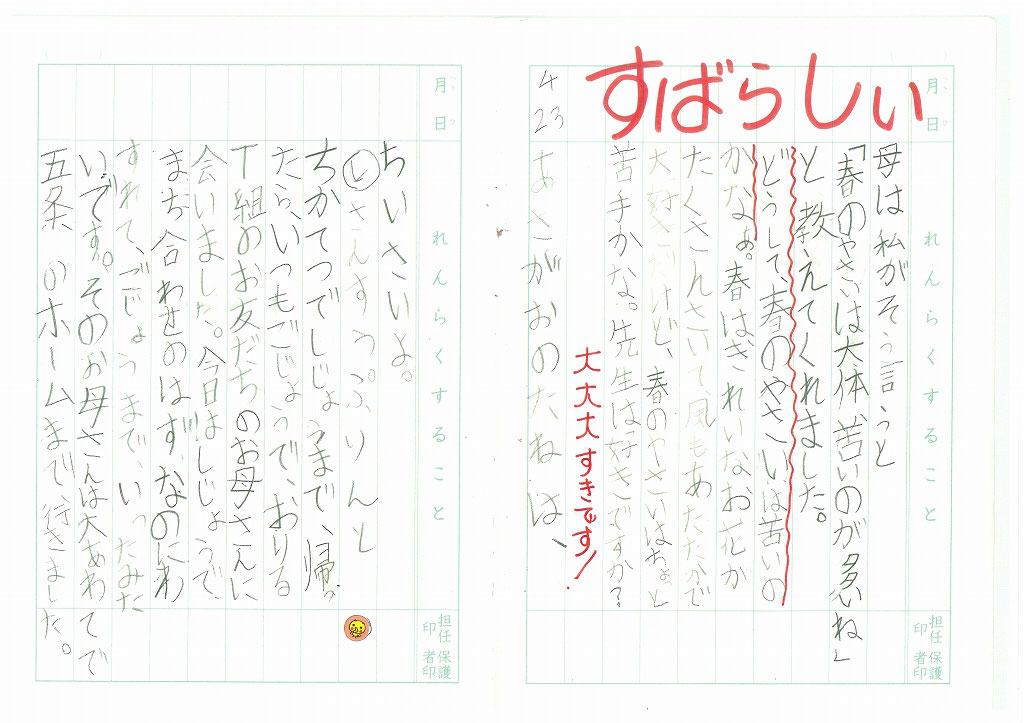 月 日
れんらくすること
担任印 保護者印
すばらしい
母は私がそう言うと
「春のやさいは大体、苦いのが多いね」
と教えてくれました。
どうして春のやさいは苦いの
かなぁ。春はきれいなお花が
たくさんさいて、風もあたたかで
大好きだけど、春のやさいはちょっと
苦手かな。先生は好きですか?
大大大すきです!
4 23
あさがおのたねは、
月 日
れんらくすること
担任印 保護者印
ちいさいよ。
いさんすうぷりんと
ちかてつでしじょうまで、帰っ
たら、いつもごじょうで、おりる
T組のお友だちのお母さんに
会いました。今日はしじょうで、
まち合わせのはず、なのにわ
すれて、ごじょうまで、いったみた
いです。そのお母さんは大あわてで
五条のホームまで、行きました。